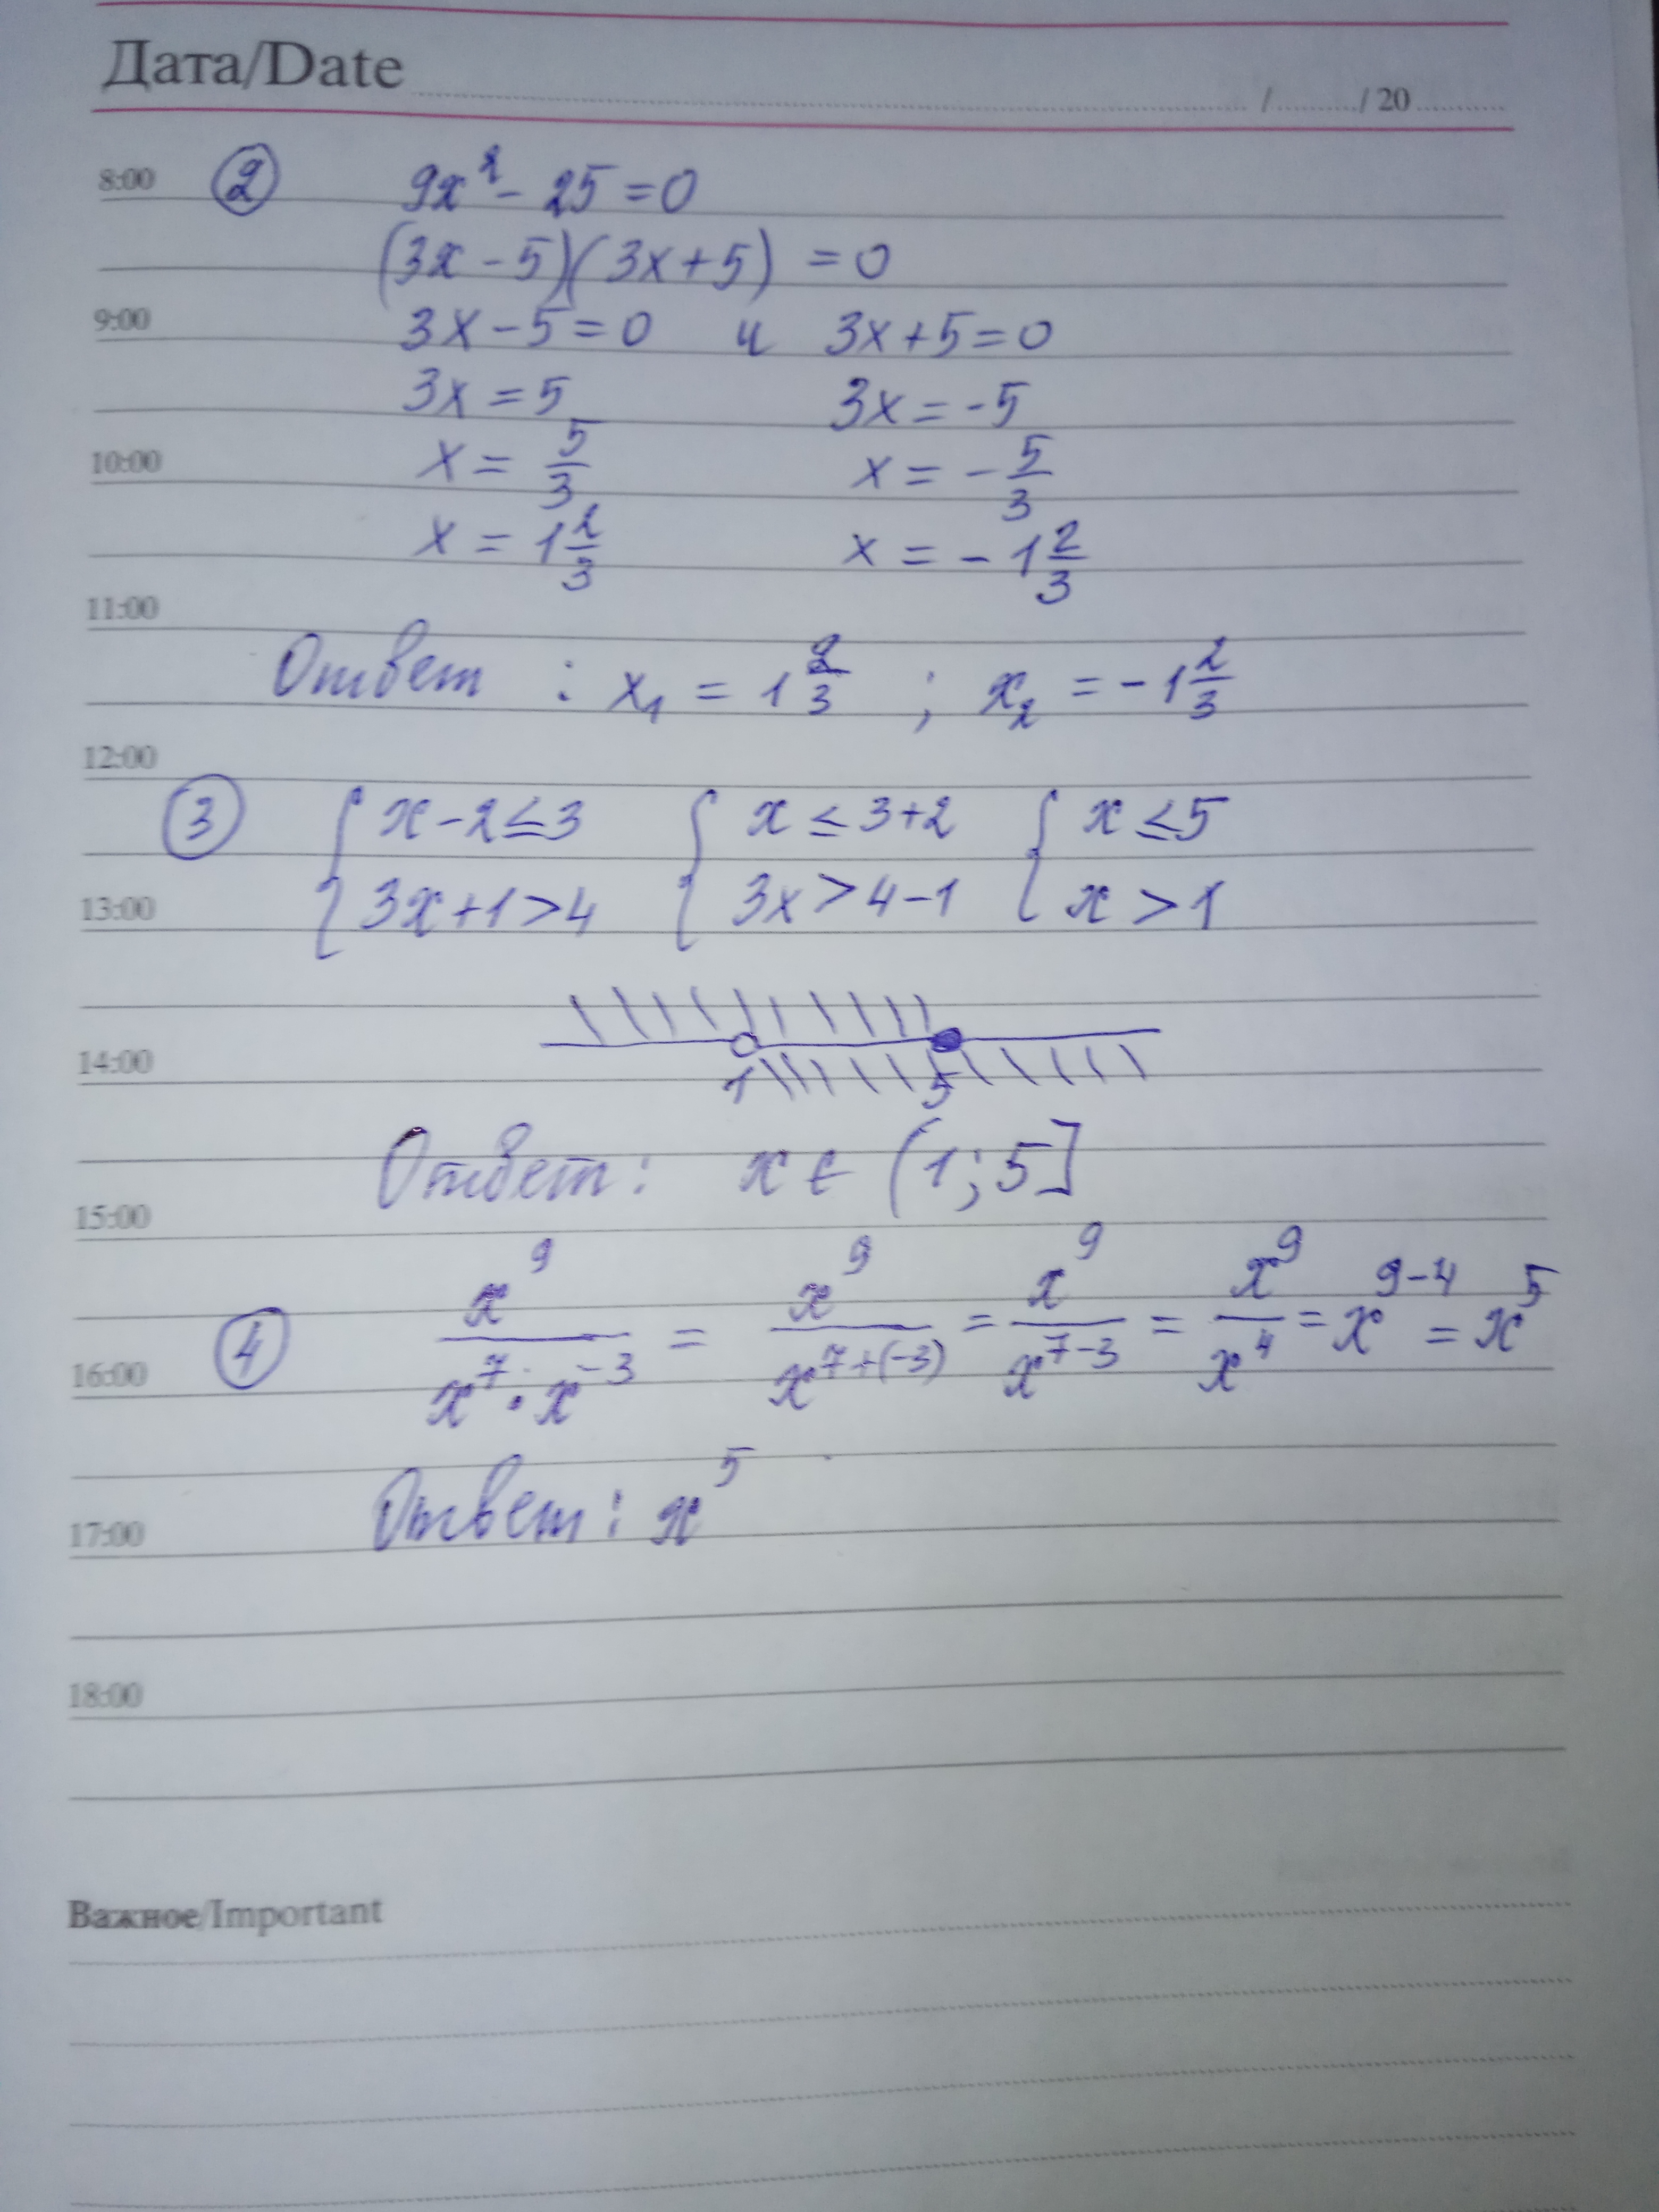 Дата/Date / / 20
8:00 ② 9x² - 25 = 0
(3x - 5)(3x + 5) = 0
9:00 3x - 5 = 0 и 3x + 5 = 0
3x = 5 3x = -5
10:00 x = 5/3 x = - 5/3
x = 1 2/3 x = - 1 2/3
11:00
Ответ : x₁ = 1 2/3 ; x₂ = - 1 2/3
12:00
③ { x - 2 ≤ 3 { x ≤ 3 + 2 { x ≤ 5
13:00 3x + 1 > 4 3x > 4 - 1 x > 1
14:00
1 5
Ответ: x ∈ (1; 5]
15:00
④ x⁹/(x⁷ · x⁻³) = x⁹/x⁷⁺⁽⁻³⁾ = x⁹/x⁷⁻³ = x⁹/x⁴ = x⁹⁻⁴ = x⁵
16:00
Ответ: x⁵
17:00
18:00
Важное/Important